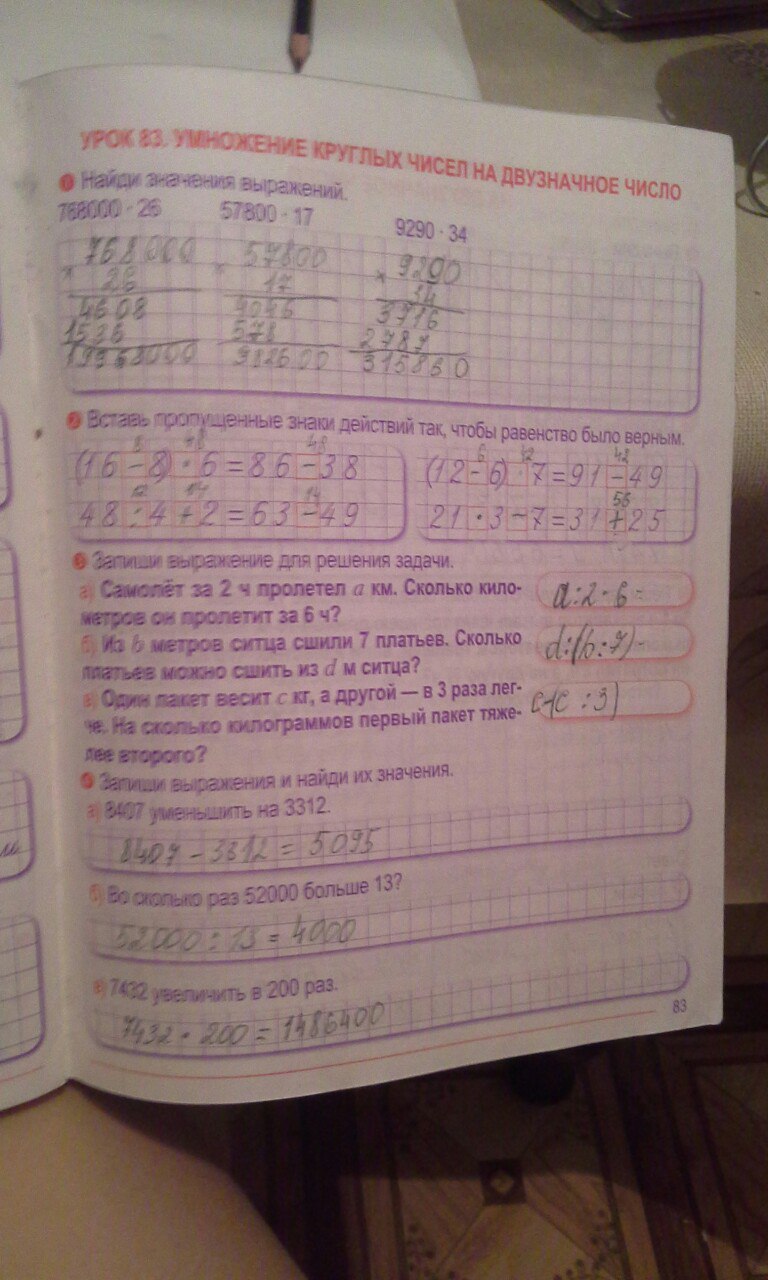 УРОК 83. УМНОЖЕНИЕ КРУГЛЫХ ЧИСЕЛ НА ДВУЗНАЧНОЕ ЧИСЛО
1 Найди значения выражений.
768000 · 26 57800 · 17 9290 · 34
768000 57800 9290
× 26 × 17 × 34
4608 4046 3716
1536 578 2787
19968000 982600 315860
2 Вставь пропущенные знаки действий так, чтобы равенство было верным.
8 48 48 6 42 42
(16 − 8) · 6 = 86 − 38 (12 − 6) · 7 = 91 − 49
12 14 14 56
48 : 4 + 2 = 63 − 49 21 · 3 − 7 = 31 + 25
3 Запиши выражение для решения задачи.
а) Самолёт за 2 ч пролетел a км. Сколько кило-
метров он пролетит за 6 ч?
a : 2 · 6 =
б) Из b метров ситца сшили 7 платьев. Сколько
платьев можно сшить из d м ситца?
d : (b : 7) =
в) Один пакет весит c кг, а другой — в 3 раза лег-
че. На сколько килограммов первый пакет тяже-
лее второго?
c − (c : 3)
4 Запиши выражения и найди их значения.
а) 8407 уменьшить на 3312.
8407 − 3312 = 5095
б) Во сколько раз 52000 больше 13?
52000 : 13 = 4000
в) 7432 увеличить в 200 раз.
7432 · 200 = 1486400
83